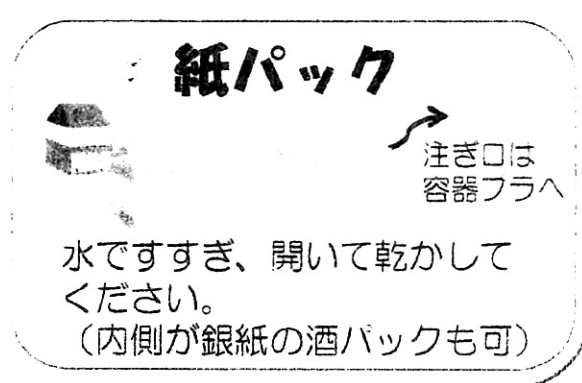 紙パック
注ぎ口は
容器プラへ
水ですすぎ、開いて乾かして
ください。
（内側が銀紙の酒パックも可）